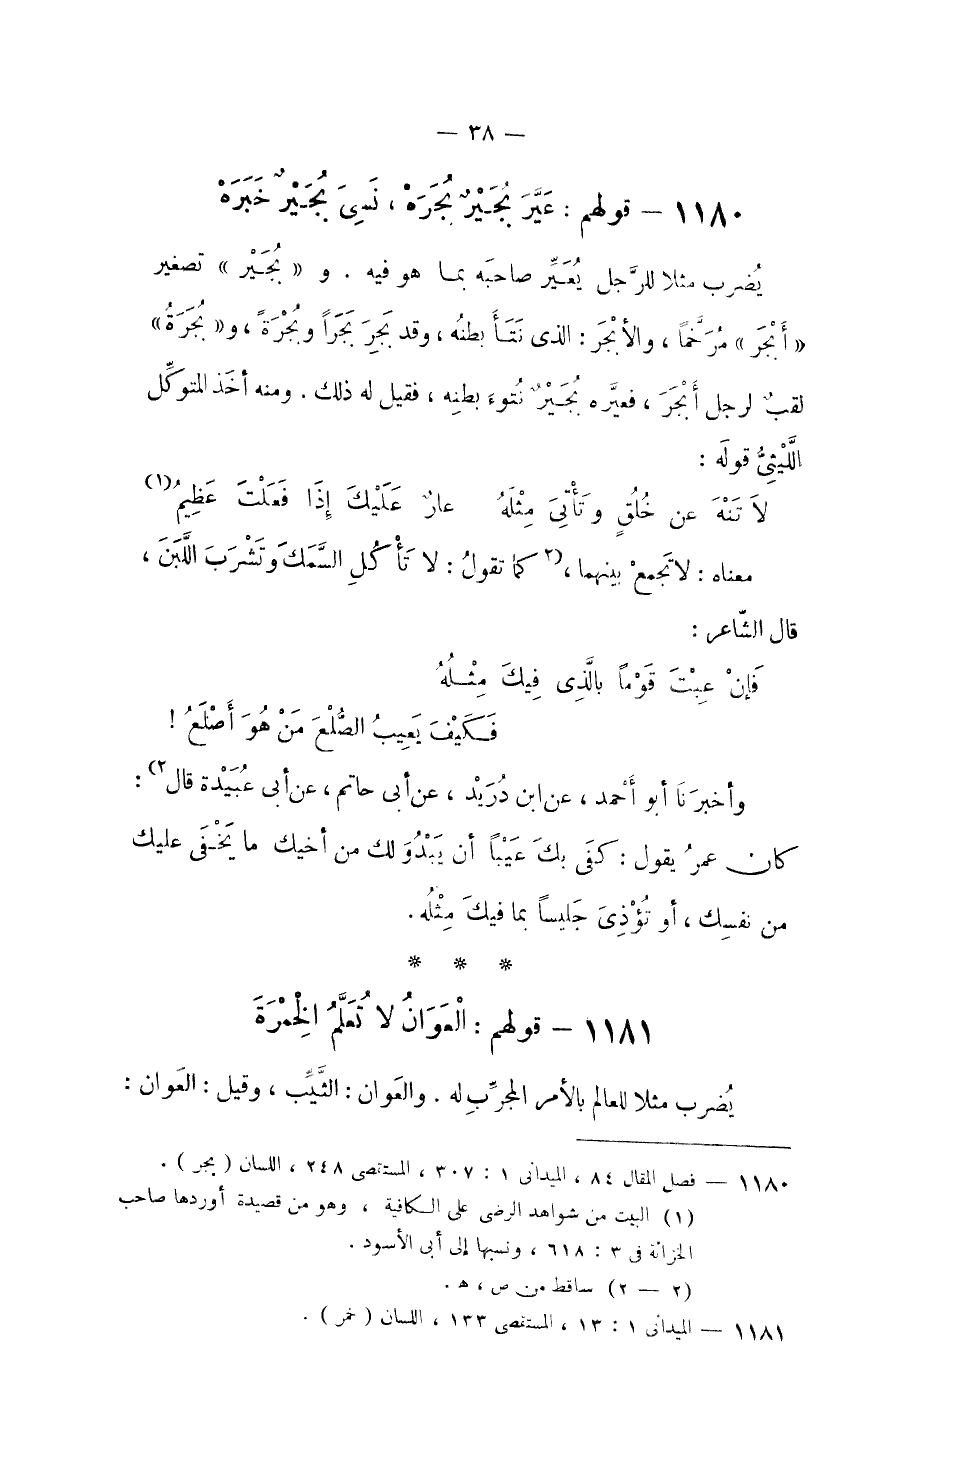 — ٣٨ —
١١٨٠ — قولهم : عَيَّرَ بُجَيْرٌ بُجَرَهْ ، نَسِىَ بُجَيْرٌ خَبَرَهْ
يُضرب مثلا للرَّجل يُعَيِّر صاحبَه بما هو فيه . و « بُجَيْر » تصغير
« أَبْجَر » مُرَخَّماً ، والأبْجَر : الذى نَتَأَ بطنُه ، وقد بَجِرَ بَجَراً وبُجْرَةً ، و« بُجَرَةُ »
لقبٌ لرجل أَبْجَرَ ، فعيَّره بُجَيْرٌ نُتوءَ بطنِه ، فقيل له ذلك . ومنه أخَذ المتوكِّل
اللَّيْثِىُّ قولَه :
لاَ تَنْهَ عن خُلُقٍ وتَأْتِىَ مِثْلَهُ عارٌ عَلَيْكَ إِذَا فَعَلْتَ عَظِيمُ(١)
معناه : لا تَجمعْ بينهما ،(٢ كما تقولُ : لا تَأْكُلِ السَّمَكَ وتَشْرَبَ اللَّبَنَ ،
قال الشّاعر :
فَإِنْ عِبْتَ قَوْماً بِالَّذِى فِيكَ مِثْلُهُ
فَكَيْفَ يَعِيبُ الصُّلْعَ مَنْ هُوَ أَصْلَعُ !
وأخبرَنَا أبو أَحْمد ، عن ابن دُرَيْد ، عن أبى حاتم ، عن أبى عُبَيْدة قال٢) :
كان عمرُ يقول : كَفَى بكَ عَيْباً أن يَبْدُوَ لك من أخيك ما يَخْفَى عليك
من نفسِك ، أو تُؤْذِىَ جَلِيساً بما فيكَ مِثْلُه .
* * *
١١٨١ — قولهم : الْعَوَانُ لا تُعَلَّمُ الْخِمْرَةَ
يُضرب مثلا للعالم بالأمر المجرِّب له . والعَوان : الثَّيِّب ، وقيل : العَوان :
١١٨٠ — فصل المقال ٨٤ ، الميدانى ١ : ٣٠٧ ، المستقصى ٢٤٨ ، اللسان ( بجر ) .
(١) البيت من شواهد الرضى على الكافية ، وهو من قصيدة أوردها صاحب
الخزانة فى ٣ : ٦١٨ ، ونسبها إلى أبى الأسود .
(٢ — ٢) ساقط من ص ، هـ .
١١٨١ — الميدانى ١ : ١٣ ، المستقصى ١٣٣ ، اللسان ( خمر ) .